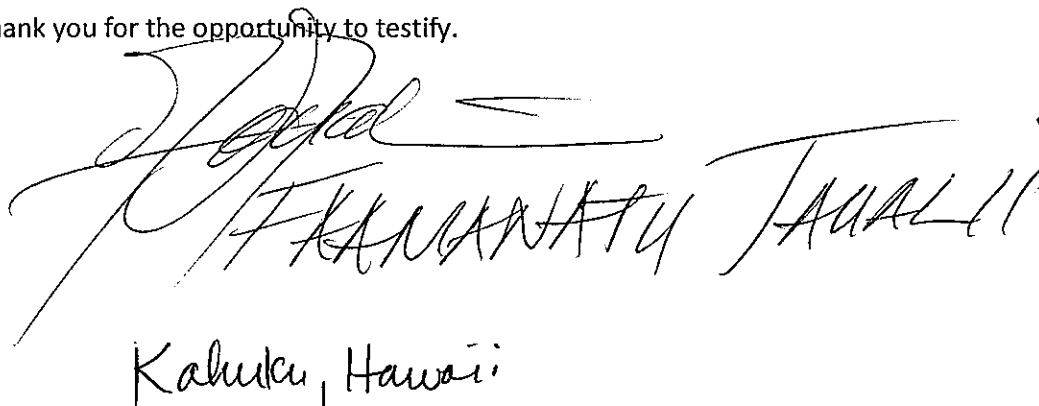 ank you for the opportunity to testify.
FAAMANATU TAUALII
Kahuku, Hawaii